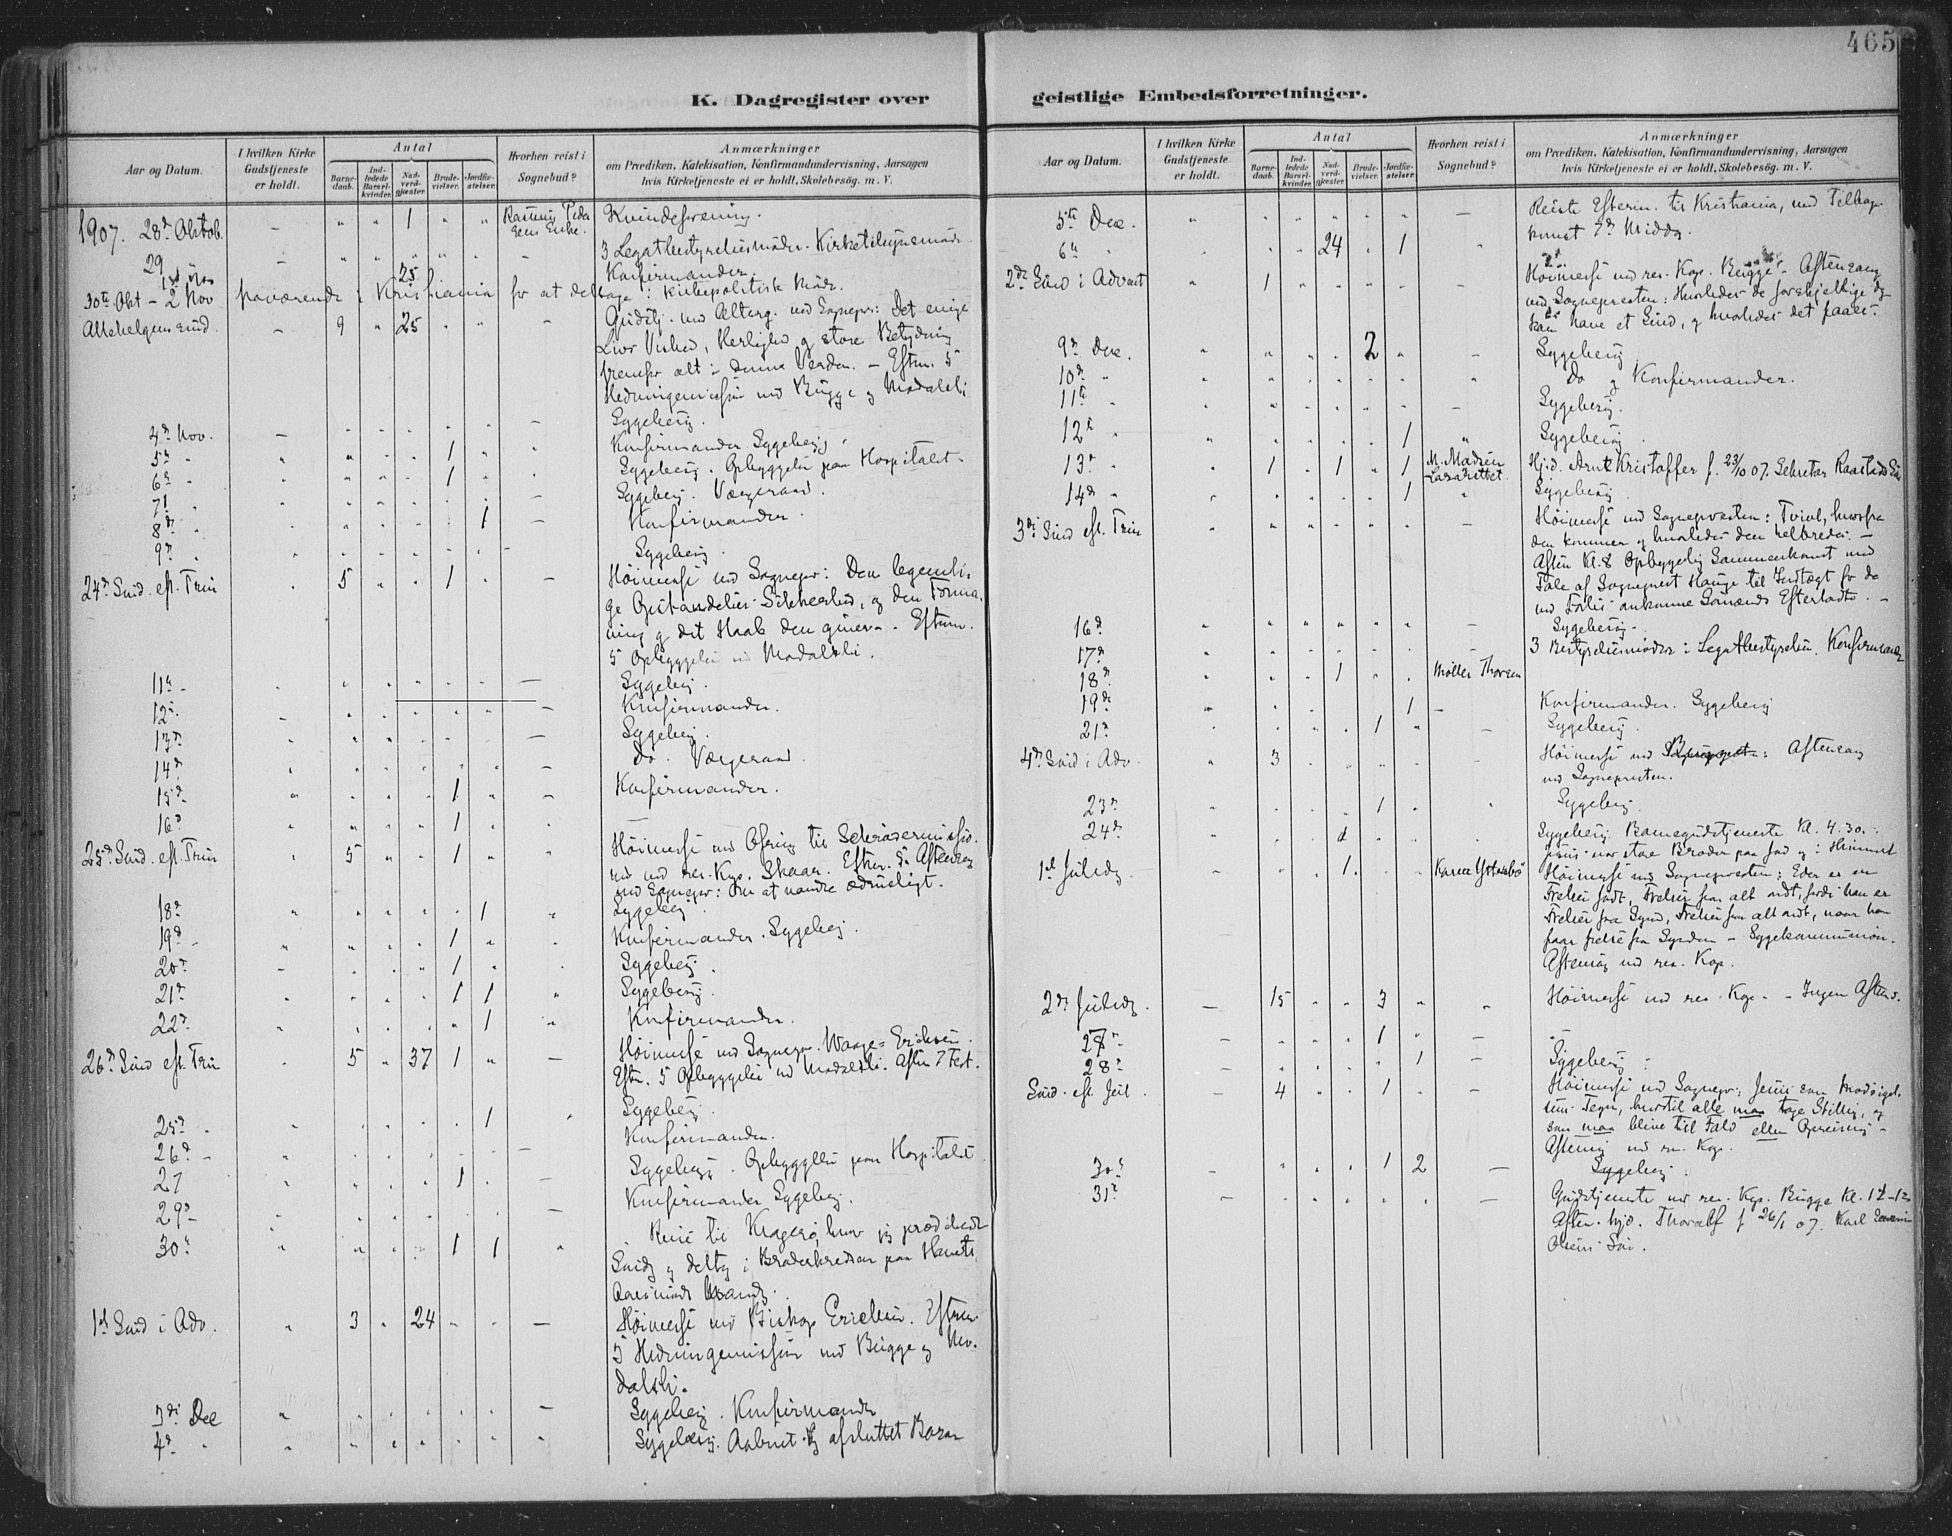 465
K. Dagregister over
geistlige Embedsforretninger.
Aar og Datum.
I hvilken Kirke Gudstjeneste er holdt.
Antal
Barne-daab.
Ind-ledede Barsel-kvinder.
Nad-verd-gjester.
Brude-vielser.
Jordfæ-stelser.
Hvorhen reist i Sognebud?
Anmærkninger
om Prædiken, Katekisation, Konfirmandundervisning, Aarsagen
hvis Kirketjeneste ei er holdt, Skolebesøg. m. V.
1907. 28de Oktob. 1 Kvindeforening.
29 3 Legatbestyrelsesmøder.
25 Konfirmander
30te Okt - 2 Nov fraværende i Kristiania for at deltage i kirkepolitisk Møde.
Allehelgens sund. 9 25 Gudstj. med Alterg. ved Sognepr: Det evige
Livs Vished, Herlighed og store Betydning
fremfor alt i denne Verden. - Efterm. 5
Hedningemission ved Bugge og Modalsli
4de Nov. Sygebesøg.
5te Konfirmander. Sygebesøg. 1
6te Sygebesøg. Opbyggelse paa Hospitalet. 1
7de Sygebesøg. Vergeraad.
8de Konfirmander. 1
9de Sygebesøg.
24de Sund. eft. Trin 5 1 Høimesse ved Sognepr: Den legemli-
ge Opstandelses Sikkerhed, og den Forma-
ning og det Haab den giver. Efterm.
5 Opbyggelse ved Modalsli.
11te Sygebesøg.
12te Konfirmander.
13de Sygebesøg.
14de Do. Vergeraad.
15de 1 Konfirmander.
16de 1
25de Sund. eft. Trin 5 1 Høimesse med Ofring til
ved res. Kap. Skaar. Efterm. Aftensang
ved Sognepr: Om at vandre ædrueligt.
18de 1 Sygebesøg.
19de 1 Konfirmander. Sygebesøg.
20de 1 Sygebesøg.
21de 1 1 Sygebesøg.
22de 1 Konfirmander.
26de Sund eft. Trin 5 37 1 Høimesse ved Sognepr.
Efter. 5 Opbyggelse ved Modalsli. Aften 7 Fest.
25de 1 Sygebesøg.
26de Konfirmander.
27 1 Sygebesøg. Opbyggelse paa Hospitalet
29de Konfirmander Sygebesøg.
30te 1 1 Reise til Kragerø, hvor jeg prædikede
1ste Sund i Adv. 3 24 Høimesse ved Biskop Erichsen. Efterm.
5 Hedningemission ved Bugge og Mo-
dalsli.
3die Dec Sygebesøg. Konfirmander
4de Sygebesøg.
Aar og Datum.
I hvilken Kirke Gudstjeneste er holdt.
Antal
Barne-daab.
Ind-ledede Barsel-kvinder.
Nad-verd-gjester.
Brude-vielser.
Jordfæ-stelser.
Hvorhen reist i Sognebud?
Anmærkninger
om Prædiken, Katekisation, Konfirmandundervisning, Aarsagen
hvis Kirketjeneste ei er holdt, Skolebesøg. m. V.
5te Dec. Reiste Efterm. til Kristiania, med Tilbage-
komst 7de Middag.
6te 24 1
2den Sund i Advent 1 Høimesse ved res. Kap. Bugge. Aftensang
ved Sognepresten: Hvorledes de forskjellige dog
kan have et Sind, og hvorledes det faaes.
9de Dec. 2 Sygebesøg
10de Do og Konfirmander.
11te Sygebesøg.
12te 1 Sygebesøg.
13de 1 1 1 M. Madsen Lazarettet. Hjd. Arnt Kristoffer f. 23/10 07.
14de 1 Sygebesøg
3die Sund eft. Trin Høimesse ved Sognepresten: Tvivl, hvorfra
den kommer og hvorledes den helbredes. -
Aften Kl. 8 Opbyggelig Sammenkomst med
Tale af Sogneprest Hauge til Indtægt for de
ved Forlis omkomne Sømænds Efterladte. -
16de Sygebesøg.
17de 3 Bestyrelsesmøder i Legatbestyrelsen. Konfirmander
18de 1 Møller Thorsen
19de 1 Konfirmander. Sygebesøg
21de 1 Sygebesøg.
4de Sund i Adv. 3 Høimesse ved Aftensang
ved Sognepresten.
23de 1 Sygebesøg.
24de 1 Sygebesøg. Barnegudstjeneste Kl. 4.30.:
Jesus vor store Broder paa Jord og i Himmel
1ste Juledag 1. Høimesse ved Sognepresten: Eder er en
Frelser født, Frelser fra alt ondt, fordi han er
Frelser fra Synd, Frelser fra alt ondt, naar han
faar frelse fra Synden - Sygekommunion.
Aftensang ved res. Kap.
2den Juledag 15 3 Høimesse ved res. Kap. - Ingen Aftens.
27de 1
28de 1 Sygebesøg
Sund. eft. Jul. 4 1 Høimesse ved Sognepr: Jesus som Modsigel-
sens Tegn, hvortil alle maa tage Stilling, og
som maa blive til Fald eller Opreisning -
Aftensang ved res. Kap.
30te 1 2 Sygebesøg.
31te Gudstjeneste ved res. Kap. Bugge Kl. 11-12
Aften. Hjd. Thoralf f 26/1 07. Karl
Olsens Søn.